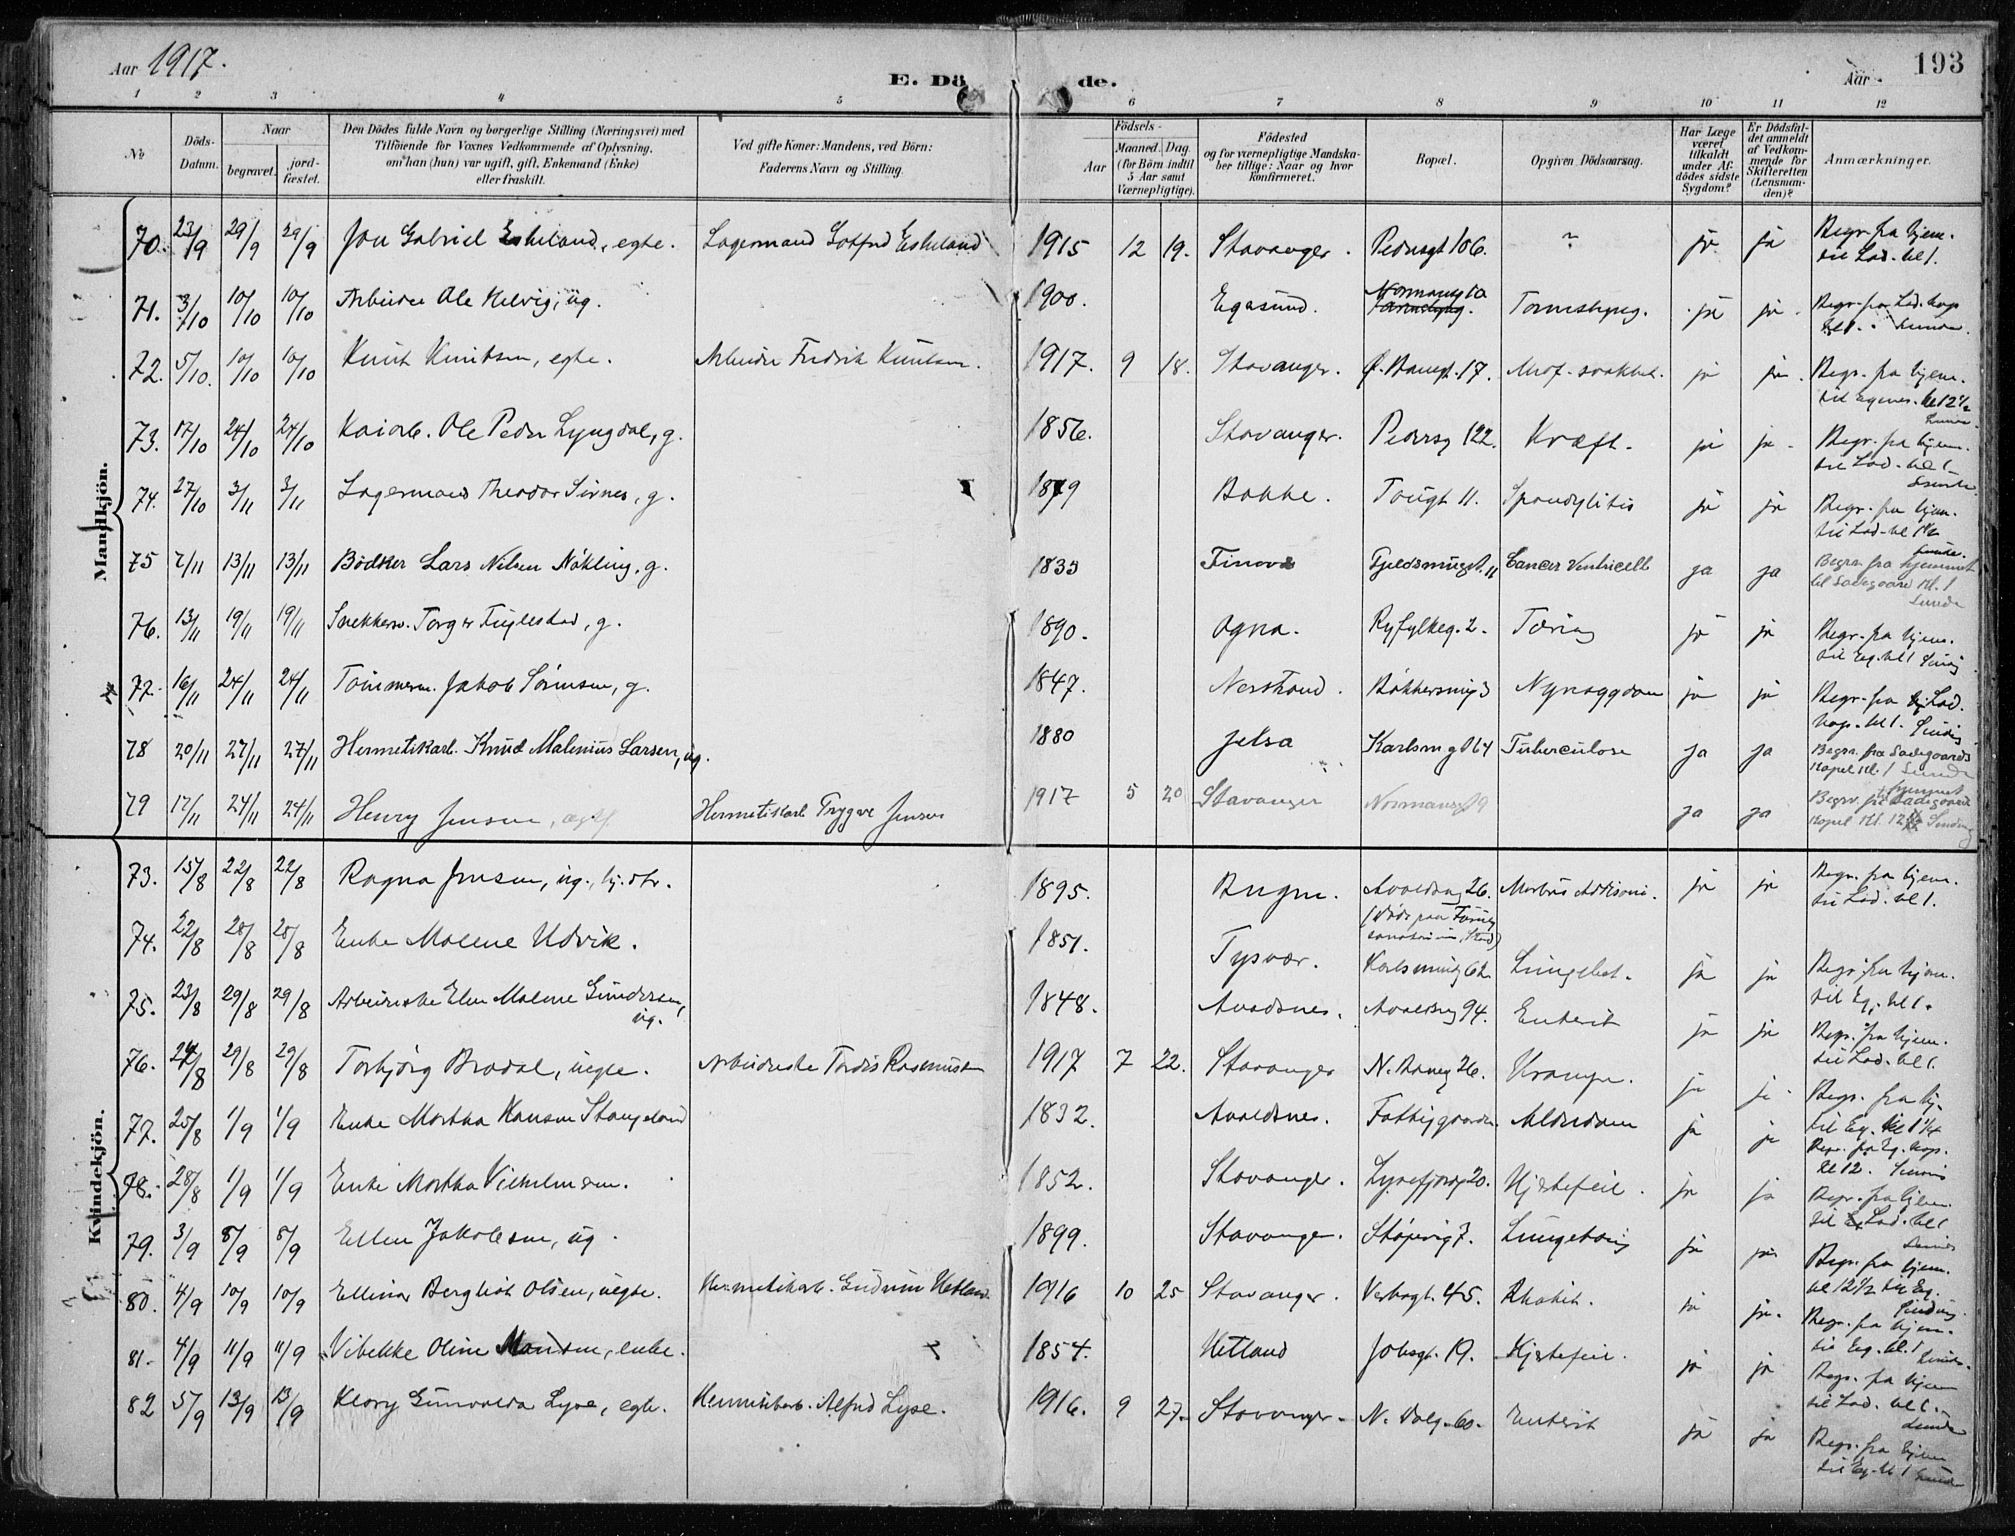 Aar 1917.
E. Dö de.
Aar
193
1 2 3 4 5 6 7 8 9 10 11 12
№
Döds-Datum.
Naar
begravet.
jordfæstet.
Den Dödes fulde Navn og borgerlige Stilling (Næringsvei) med Tilföiende for Voxnes Vedkommende af Oplysning, om han (hun) var ugift, gift, Enkemand (Enke) eller fraskilt.
Ved gifte Koner: Mandens, ved Börn: Faderens Navn og Stilling.
Aar
Födsels-
Maaned. Dag.
(for Börn indtil 5 Aar samt Værnepligtige).
Födested og for værnepligtige Mandskaber tillige: Naar og hvor konfirmeret.
Bopæl.
Opgiven Dödsaarsag.
Har Læge været tilkaldt under Afdödes sidste Sygdom?
Er Dödsfaldet anmeldt af Vedkommende for Skifteretten (Lensmanden)?
Anmærkninger.
Mandkjön.
70. 23/9 29/9 29/9 Jon Gabriel Eskeland, egte. Lagermand Gotfred Eskeland 1915 12 19. Stavanger. Pedersgt 106. ? ja ja Begr. fra hjem. til Lad. kl 1.
71. 3/10 10/10 10/10 Arbeider Ole Helvig, ug. 1900. Egersund. Normannsg 10 Tarmslyng. ja ja Begr. fra Lad. kap kl 1.
72. 5/10. 10/10 10/10 Knut Knutsen, egte. Arbeider Fredrik Knutsen. 1917. 9 18. Stavanger. Ø. Baneg. 17. Atrof. svakhet. ja ja. Begr. fra hjem. til Eganes. kl 12 1/2
73. 17/10 24/10 24/10 Kaiarb. Ole Peder Lyngdal, g. 1856. Stavanger. Pedersg 122. Kræft. ja ja Begr. fra hjem. til Lad. kl 1
74. 27/10 3/11 3/11 Lagermand Theodor Sirnes, g. 1879 Bakke. Taugt 11. Spondylitis ja ja Begr. fra hjem. til Lad. kl 1 1/2
75 7/11 13/11 13/11 Bödker Lars Nilsen Nökling, g. 1835 Finnö Fjeldsmugt. 11 Cancer Ventriculi ja ja Begr. fra hjemmet til Ladegaard kl. 1 Sunde
76. 13/11 19/11 19/11 Snekkerm. Torger Fuglestad, g. 1890. Ogna. Ryfylkeg. 2. Tæring ja ja Begr. fra hjem. til Eg. kl 1
77. 16/11 24/11 24/11 Tömmerm. Jakob Sörensen, g. 1847. Nerstrand. Bökkersmug 3 Nyresygdom ja ja Begr. fra Lad. kap. kl 1.
78 20/11 27/11 27/11 Hermetikarb. Knud Malenius Larsen, ug. 1880 Jelsa Karlsmg 64 Tuberculose ja ja Begr. fra Ladegaards Kapel kl. 1 Sunde
79 17/11 24/11 24/11 Henry Jensen, egte. Hermetikarb Trygve Jensen 1917 5 20 Stavanger Normansgt 9 ja ja Begrv. fra hjemmet til Ladegaard Kapel Kl. 12
Kvindekjön.
73. 15/8 22/8 22/8 Ragna Jensen, ug., hj. dtr. 1895. Bergen. Avaldsng 26. Morbus Addisoni. ja ja Begr. fra hjem. til Lad. kl 1.
74. 22/8 28/8 28/8 Enke Malene Udvik. 1851. Tysvær. Karlsmindeg 62 Lungebet. ja ja Begr. fra hjem. til Eg. kl 1.
75. 23/8 29/8 29/8 Arbeiderske Elen Malene Gundersen, ug. 1848. Avaldsnes. Avaldsng 94. Enterit ja ja Begr. fra hjem. til Lad. kl 1.
76. 24/8 29/8 29/8 Torbjörg Bradal, uegte. Arbeiderske Tordis Rasmussen 1917 7 22. Stavanger N. Baneg 26. Krampe. ja ja Begr. fra hj. til Eg. kl 1 1/4
77. 25/8 1/9 1/9 Enke Martha Hansen Stangeland 1832. Avaldsnes. Fattiggaarden. Alderdom ja ja Begr. fra Eg. kap. kl 12.
78. 28/8 1/9 1/9 Enke Martha Vilhelmsen. 1852. Stavanger. Lysefjordg 20. Hjertefeil. ja ja Begr. fra hjem. til Lad. kl 1
79. 3/9 8/9 8/9 Ellen Jakobsen, ug. 1899. Stavanger. Støperig 7. Lungetæring ja ja Begr. fra hjem. kl 12 1/2 til Eg.
80. 4/9 10/9 10/9 Ellinor Bergliot Olsen, uegte. Hermetikarb. Gudrun Hetland 1916 10 25 Stavanger. Verksgt. 45. Rhakit. ja ja. Begr. fra hjem. til Eg. kl. 1
81. 4/9 11/9 11/9 Vibekke Oline Madsen, enke. 1854. Hetland Jobsgt. 19. Hjertefeil. ja ja Begr. fra hjem til Lad. kl 1.
82 5/9 13/9 13/9 Klary Gunvalda Lyse, egte. Hermetikarb. Alfred Lyse. 1916. 9 27. Stavanger. N. Dalg. 60. Enterit ja ja Begr. fra hjem til Eg. kl 1